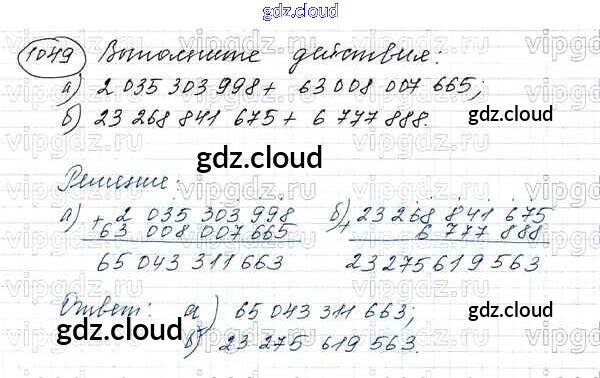 gdz.cloud
1049 Выполните действия:
а) 2 035 303 998 + 63 008 007 665;
б) 23 268 841 675 + 6 777 888.
gdz.cloud
gdz.cloud
Решение:
а) + 2 035 303 998 б) + 23 268 841 675
63 008 007 665 6 777 888
65 043 311 663 23 275 619 563
Ответ: а) 65 043 311 663;
gdz.cloud
gdz.cloud
б) 23 275 619 563.